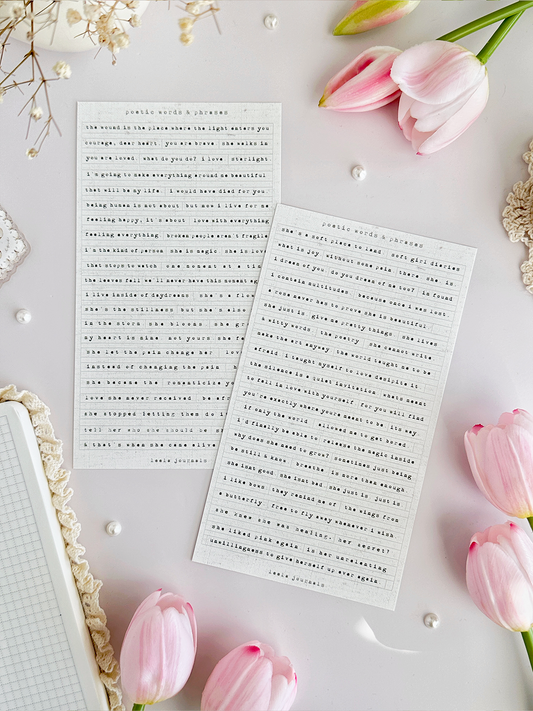 poetic words & phrases
the wound is the place where the light enters you
courage, dear heart. you are brave she walks in
you are loved. what do you do? i love starlight
i'm going to make everything around me beautiful
that will be my life. i would have died for you.
being human is not about but now i live for me
feeling happy, it's about love with everything
feeling everything broken people aren't fragile
i'm the kind of person she is magic she is
that stops to watch one moment at a
the leaves fall we'll never have this moment
i live inside of daydreams she's a
she's the stillness but she's
in the storm she blooms she
my heart is mine not yours she
she let the pain change her
instead of changing the pain
she became the romanticize
love she never received
she stopped letting them do
tell her who she should be
& that's when she came alive
leele journals
poetic words & phrases
she's a soft place to land soft girl diaries
what is joy without some pain there she is
i dream of you do you dream of me too? in found
i contain multitudes because once i was lost
a rose never has to prove she is beautiful
she just is give me pretty things she lives
a witty words the poetry she cannot write
make the art anyway the world taught me to be
afraid i taught myself to love despite it
the silence is a quiet invitation whats meant
to fall in love with yourself for you will find
you're exactly where you're meant to be its way
if only the world allowed me to get bored
i'd finally be able to release the magic inside
why does she need to grow? sometimes just being
be still & know breathe is more than enough
she just good she just bad she just is just is
i like bows they remind me of the wings from
a butterfly free to fly away whenever i wish
she knew she was healing. her secret?
she liked pink again is her unrelenting
unwillingness to give herself up ever again
leele journals